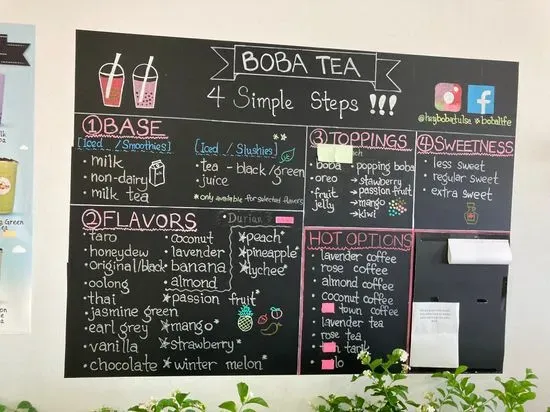 BOBA TEA
4 Simple Steps !!!
@heybobatulsa #bobalife
① BASE
[Iced / Smoothies]
• milk
• non-dairy
• milk tea
[Iced / Slushies]
**
• tea - black/green
• juice
*only available for selected flavors
② FLAVORS
Durian
• taro
• honeydew
• original/black
• oolong
• thai
• jasmine green
• earl grey
• vanilla
• chocolate
• coconut
• lavender
• banana
• almond
*passion fruit*
*mango*
*strawberry*
*winter melon*
*peach*
*pineapple*
*lychee*
③ TOPPINGS
• boba
• oreo
• fruit jelly
• popping boba
→ stawberry
→ passion fruit
→ mango
→ kiwi
④ SWEETNESS
• less sweet
• regular sweet
• extra sweet
HOT OPTIONS
• lavender coffee
• rose coffee
• almond coffee
• coconut coffee
• town coffee
• lavender tea
• rose tea
• tarik
• lo